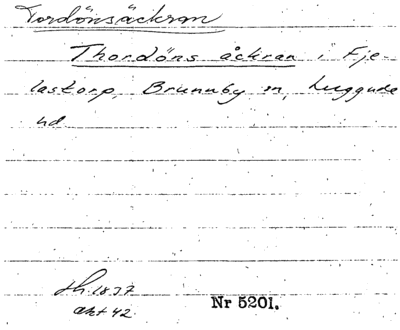 Tordönsäckran
Thordöns åckran i Fje-
lastorp, Brunnby sn, Luggude
hd
sh 1837
akt 42
Nr 5201.